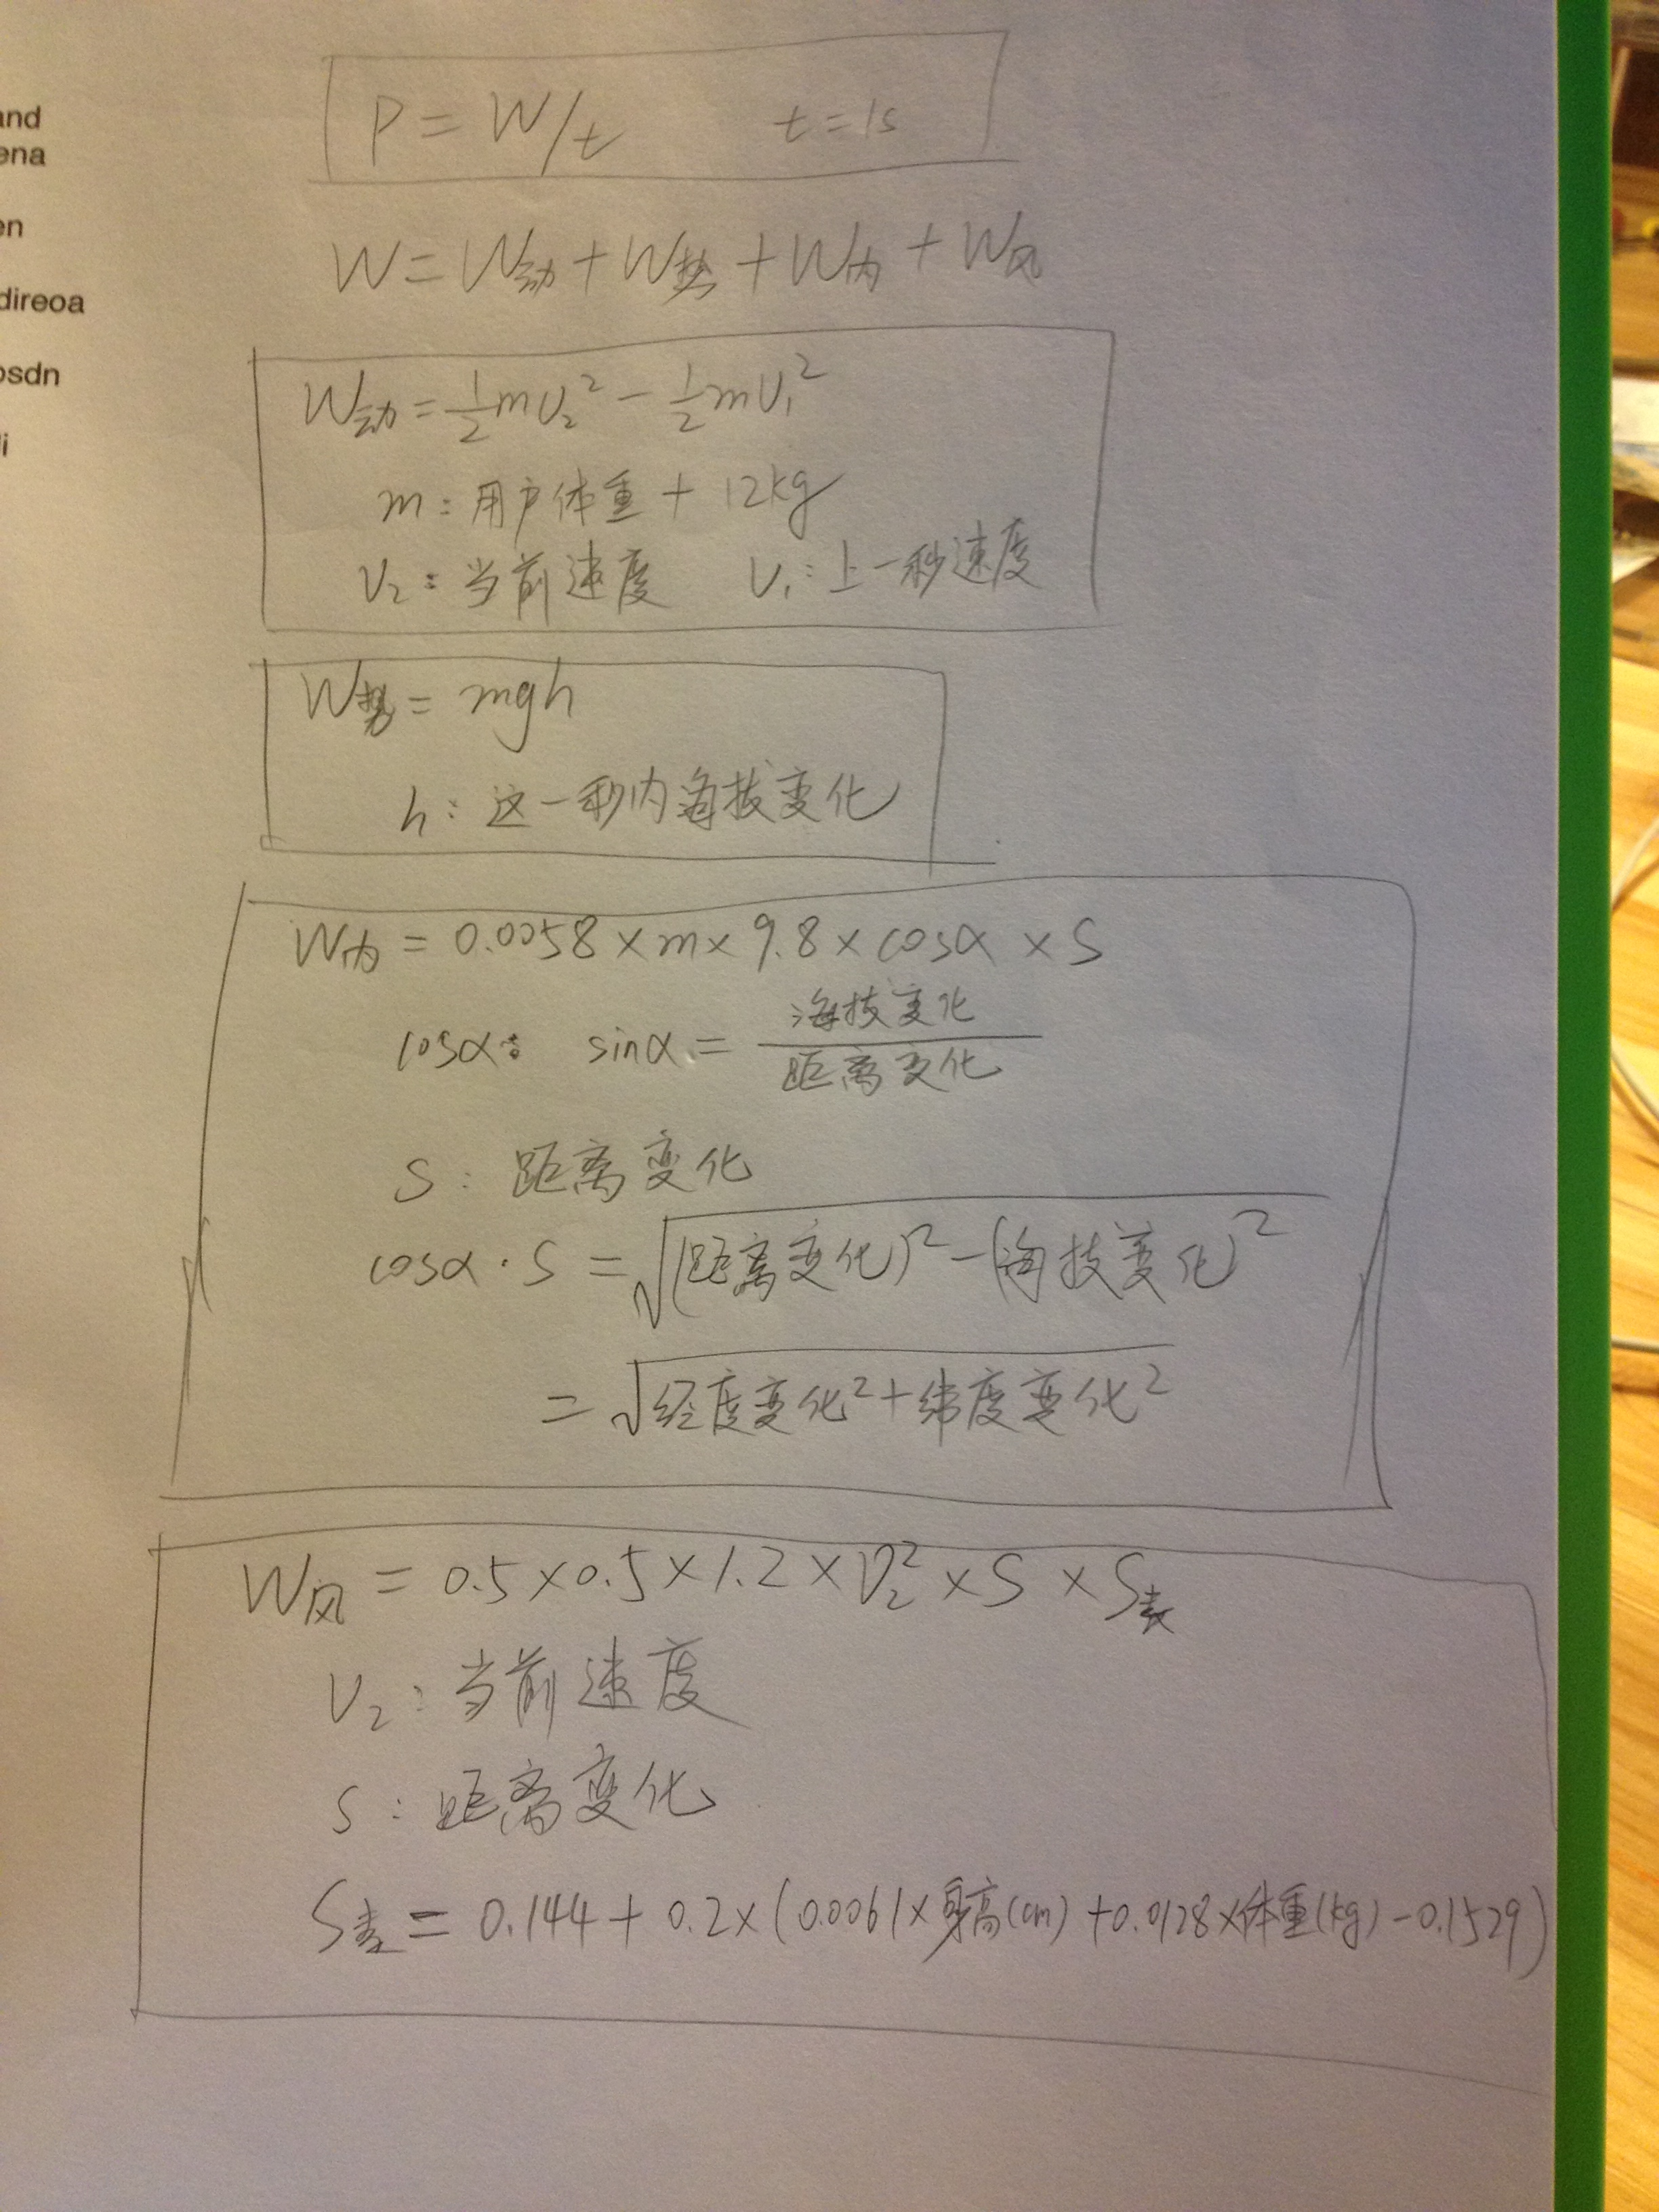 and
ena
en
direoa
osdn
i
P = W/t t=1s
W = W动 + W势 + W内 + W风
W动 = ½mV₂² − ½mV₁²
m: 用户体重 + 12kg
V₂: 当前速度 V₁: 上一秒速度
W势 = mgh
h: 这一秒内海拔变化
W内 = 0.0058 × m × 9.8 × cosα × S
cosα: sinα = 海拔变化/距离变化
S: 距离变化
cosα · S = √((距离变化)² − (海拔变化)²)
= √(经度变化² + 纬度变化²)
W风 = 0.5 × 0.5 × 1.2 × V₂² × S × S表
V₂: 当前速度
S: 距离变化
S表 = 0.144 + 0.2 × (0.0061 × 身高(cm) + 0.0128 × 体重(kg) − 0.1529)